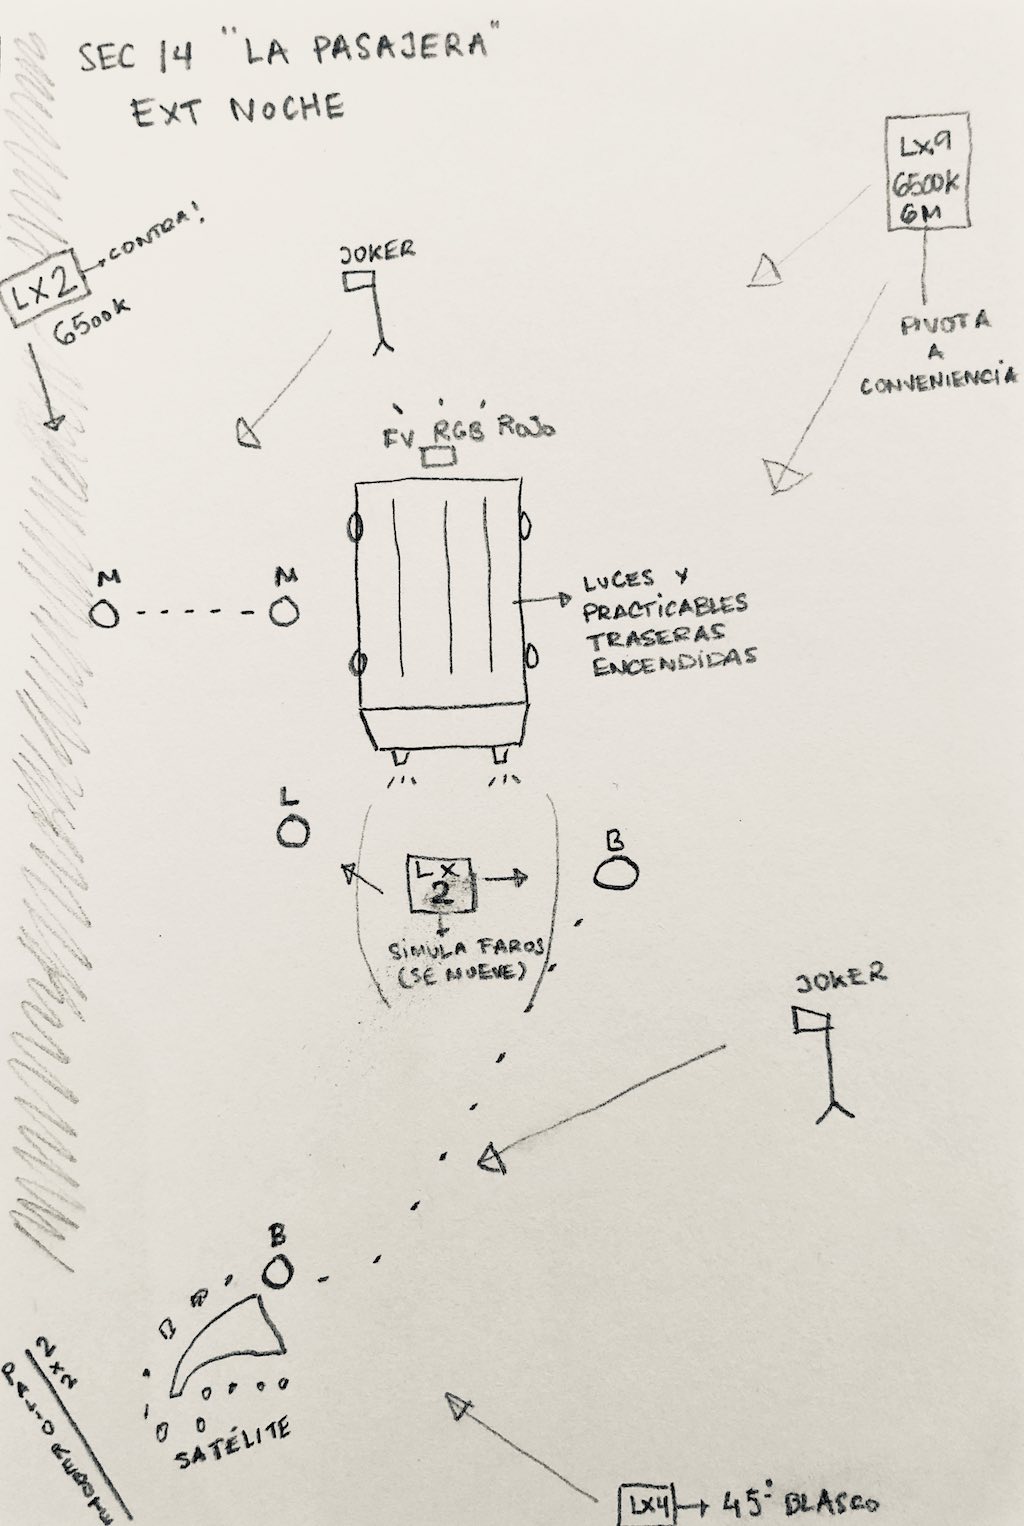 SEC 14 "LA PASAJERA"
EXT NOCHE
LX9
6500K
6M
PIVOTA
A
CONVENIENCIA
LX2
CONTRA!
6500K
JOKER
FV RGB ROJO
M
M
LUCES Y
PRACTICABLES
TRASERAS
ENCENDIDAS
L
B
LX
2
SIMULA FAROS
(SE MUEVE)
JOKER
B
SATÉLITE
2x2
PALIO REBOTE
LX4
45° BLASCO